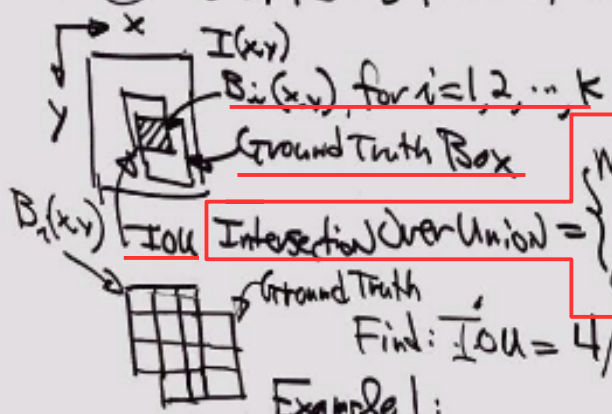 x
I(x,y)
y
Bi(x,y), for i=1,2,...,K
Ground Truth Box
Bi(x,y)
IOU Intersection Over Union = {
Ground Truth
Find: IOU = 4/
Example 1: